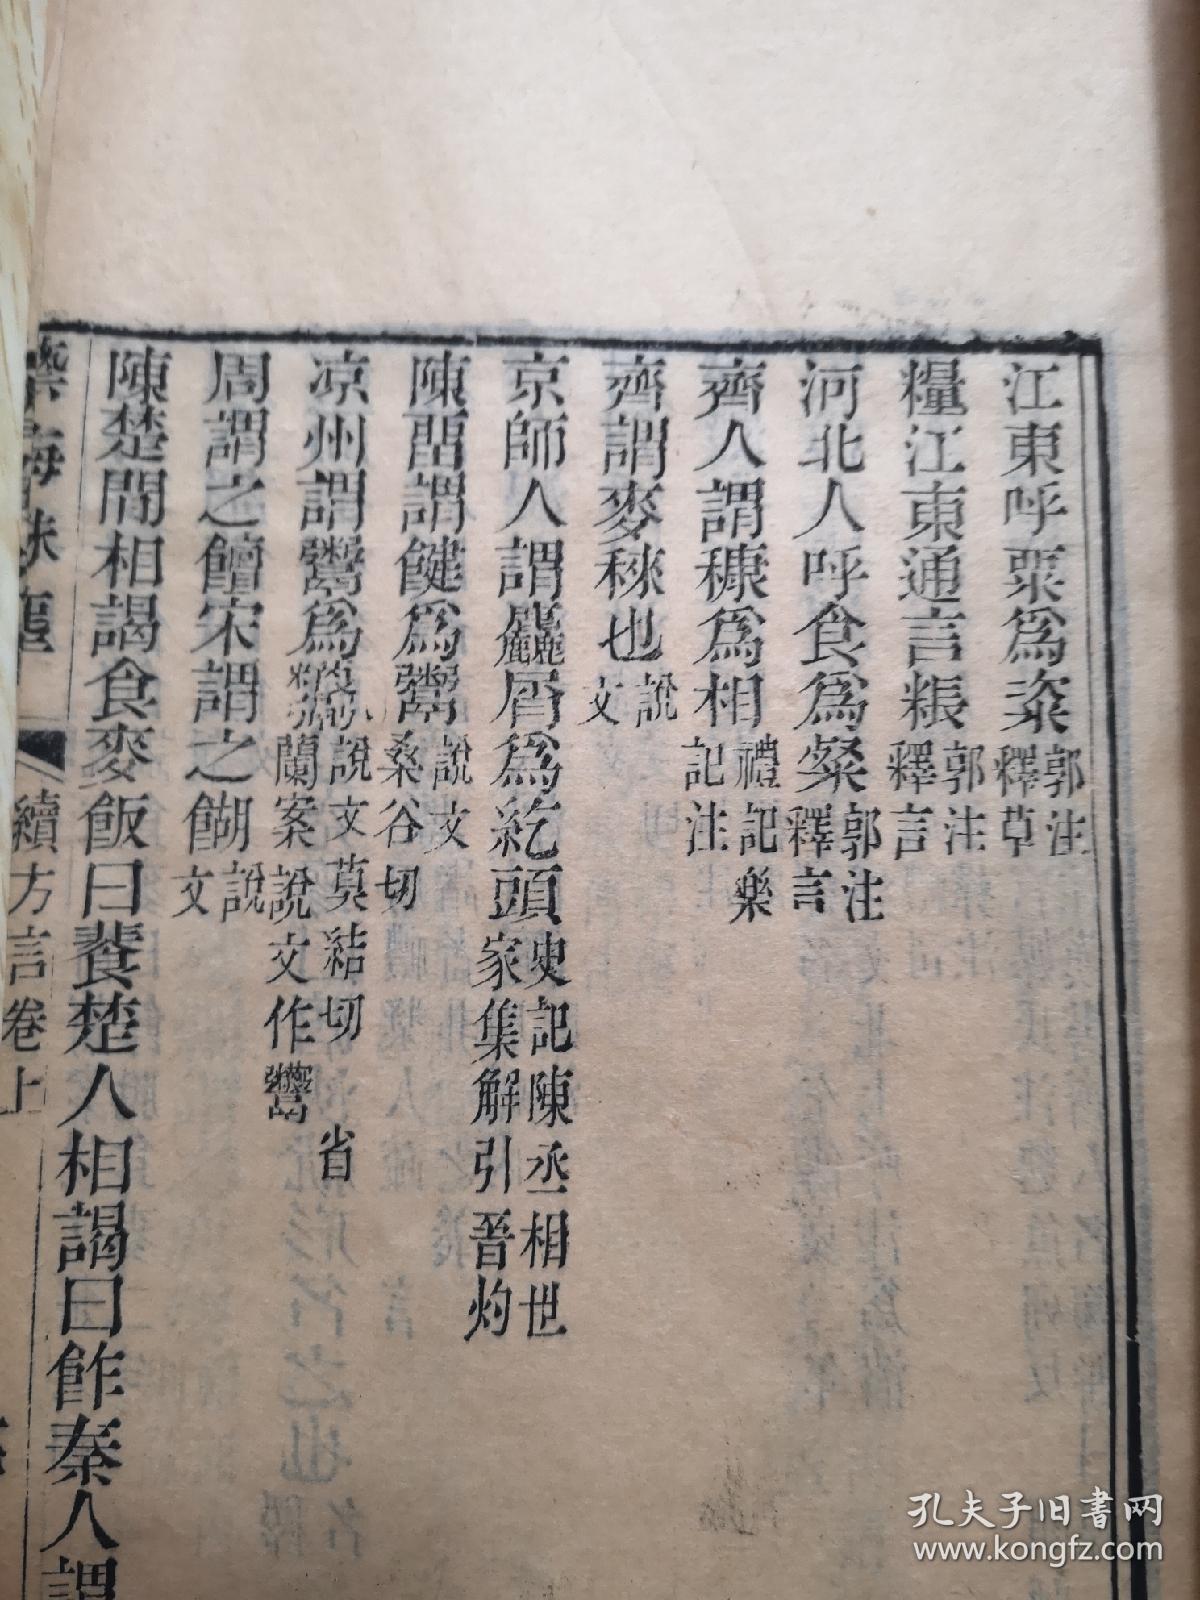 江東呼粟爲粢郭注釋草
糧江東通言粻郭注釋言
河北人呼食爲粲郭注釋言
齊人謂穅爲相禮記樂記注
齊謂麥䅘也說文
京師人謂麤屑爲紇頭史記陳丞相世家集解引晉灼
陳畱謂饘爲鬻說文桑谷切
凉州謂鬻爲說文莫結切省蘭案說文作鬻
周謂之饘宋謂之餬說文
陳楚間相謁食麥飯曰餥楚人相謁曰飵秦人謂
藝海珠塵
續方言卷上
孔夫子旧书网
www.kongfz.com